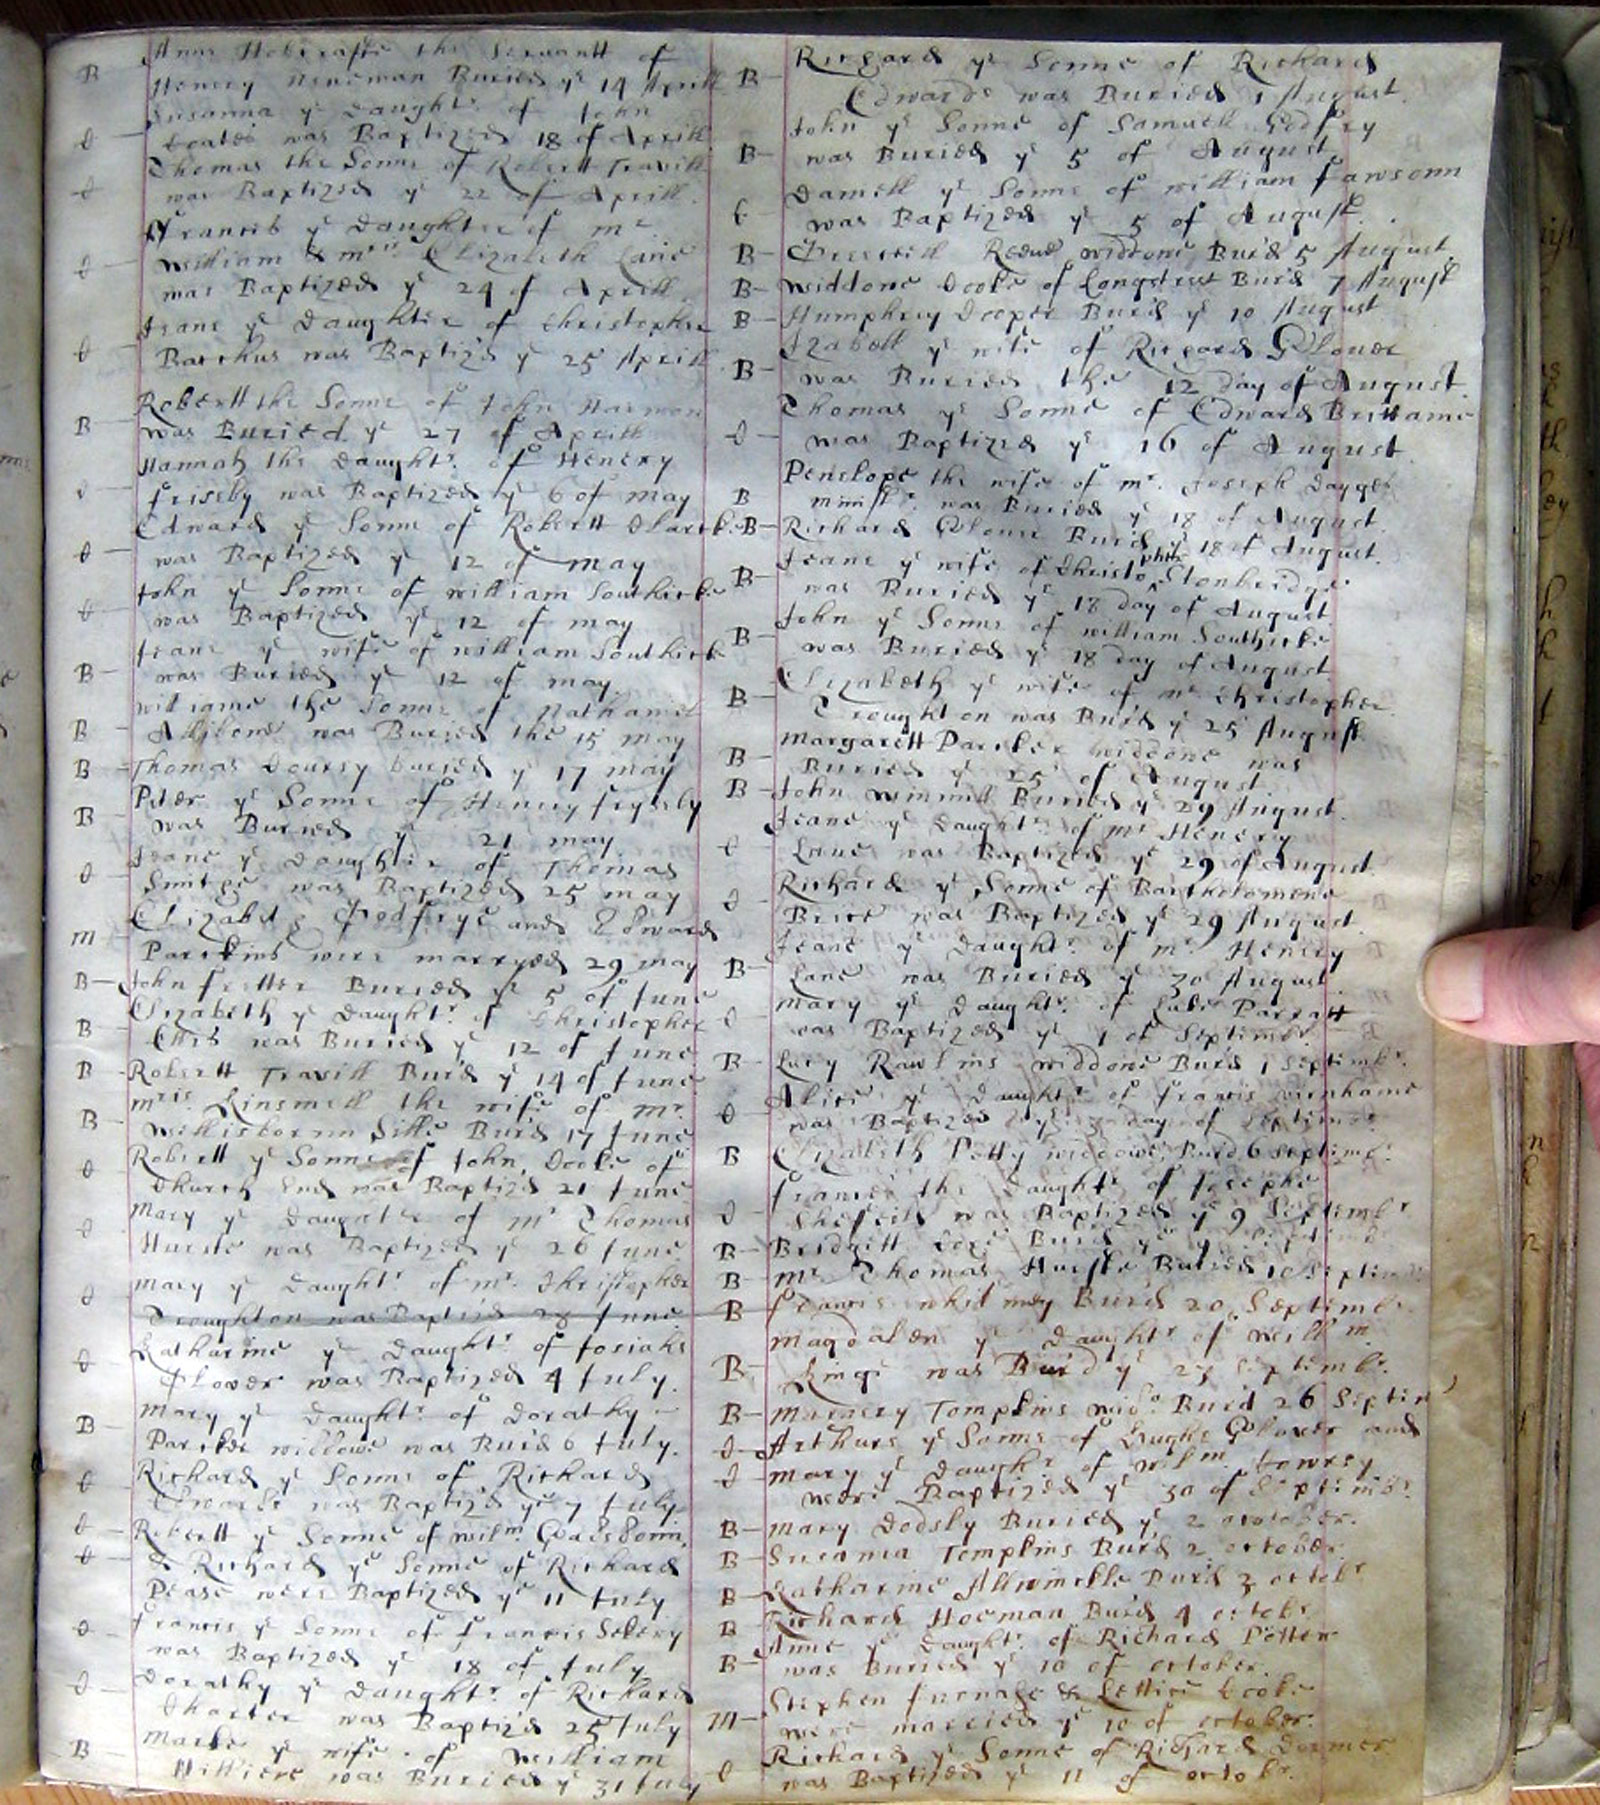 B Anne Holcrafte the Servantt of
Henery Neneman Buried ye 14 Aprill
Susanna ye Daughtr. of John
C Coates was Baptized 18 of Aprill
Thomas the Sonne of Robertt Travill
C was Baptized ye 22 of Aprill.
Francis ye Daughter of mr
C William & mris Elizabeth Lane
was Baptized ye 24 of Aprill
Jeane ye Daughter of Christopher
C was Baptizd ye 25 Aprill
Robertt the Sonne of John Harmon
B was Buried ye 27 of Aprill
Hannah the Daughtr. of Henery
C friseby was Baptized ye 6 of may
Edward ye Sonne of Robertt Clarck
C was Baptized ye 12 of may
John ye Sonne of william Southicke
C was Baptized ye 12 of may
Jeane ye wife of william Southick
B was Buried ye 12 of may.
williame the Sonne of Nathaniel
B was Buried the 15 may
B Thomas buried ye 17 may
Peter ye Sonne of Henery frysely
B was Buried ye 21 may.
Jeane ye Daughter of Thomas
C Smithe was Baptized 25 may
Elizabeth Godfrye and Edward
m Parckins were marryed 29 may
B John fretter Buried ye 5 of June
Elizabeth ye Daughtr. of Christopher
B Ellis was Buried ye 12 of June
B Robertt Travill Burd ye 14 of June
mris. Kinsmell the wife of mr.
B Willisborun Sille Burd 17 June
Robertt ye Sonne of John Cooke of
C Church End was Baptizd 21 June
Mary ye Daughter of mr Thomas
C Hurste was Baptized ye 26 June
Mary ye Daughtr of mr. Christopher
C Troughton was Baptizd 28 June
Katharine ye Daughtr of Josiahs
C Glover was Baptized 4 July.
Mary ye Daughtr. of Dorathy
B Parcker widdowe was Burd 6 July.
Richard ye Sonne of Richard
C Edwards was Baptizd ye 7 July
C Robertt ye Sonne of wilm
C & Richard ye Sonne of Richard
Pease were Baptized ye 11 July
C Francis ye Sonne of francis
was Baptized ye 18 of July
C Dorathy ye Daughtr. of Richard
Charter was Baptizd 25 July
B ye wife of William
Hilliere was Buried ye 31 July
B Richard ye Sonne of Richard
Edwards was Buried 1 August.
John ye Sonne of Samuell Godfry
B was Buried ye 5 of August
Daniell ye Sonne of william fawsonn
C was Baptized ye 5 of August.
B Reeve widdowe Burd 5 August
B widdowe Cooke of Longstreet Burd 7 August
B Humphrey Cooper Burd ye 10 August
Izabell ye wife of Richard Glover
B was Buried the 12 day of August
Thomas ye Sonne of Edward Brittaine
C was Baptized ye 16 of August
Penelope the wife of mr. Joseph
B ministr. was Buried ye 18 of August
B Richard Glover Burd ye 18 of August.
Jeane ye wife of Christopher Stonbridge
B was Buried ye 18 day of August
John ye Sonne of william Southicke
B was Buried ye 18 day of August
Elizabeth ye wife of mr Christopher
B Troughton was Burd ye 25 August
Margarett Parcker widdowe was
B Buried ye 25 of August
B John winmill Buried ye 29 August
Jeane ye Daughtr. of mr Henery
C Lane was Baptized ye 29 of August
Richard ye Sonne of Bartholomewe
C Brice was Baptized ye 29 August.
Jeane ye Daughtr. of mr. Henery
B Lane was Buried ye 30 August.
Mary ye Daughtr. of Luke Parratt
C was Baptized ye 1 of Septembr.
B Lucy Rawlins widdowe Burd 1 Septembr.
Alice ye Daughtr of francis
C was Baptized ye day of Septembr
B Elizabeth Petty widdowe Burd 6 Septembr.
frances the Daughtr of Josephe
C Shefeild was Baptized ye 9 Septembr
B Bridgitt Burd ye
B mr. Thomas Hurste Buried 10 Septembr
B francis Burd 20 Septembr.
Magdalen ye Daughtr of willm
B Kinge was Burd ye Septembr.
B Tompkins wido. Burd 26 Septem
C Arthure ye Sonne of Hughe Glover and
C Mary ye Daughtr of wilm
were Baptized ye 30 of Septembr.
B Mary Dodsly Buried ye 2 october.
B Susanna Tompkins Burd 2 october.
B Katharine Allwinckle Burd 3 octobr
B Richard Burd 4 octobr
Anne ye Daughtr. of Richard Potter
B was Buried ye 10 of october.
Stephen furnase & Lettice Cooke
m were married ye 10 of october.
Richard ye Sonne of Richard Dormer
C was Baptized ye 11 of octobr.